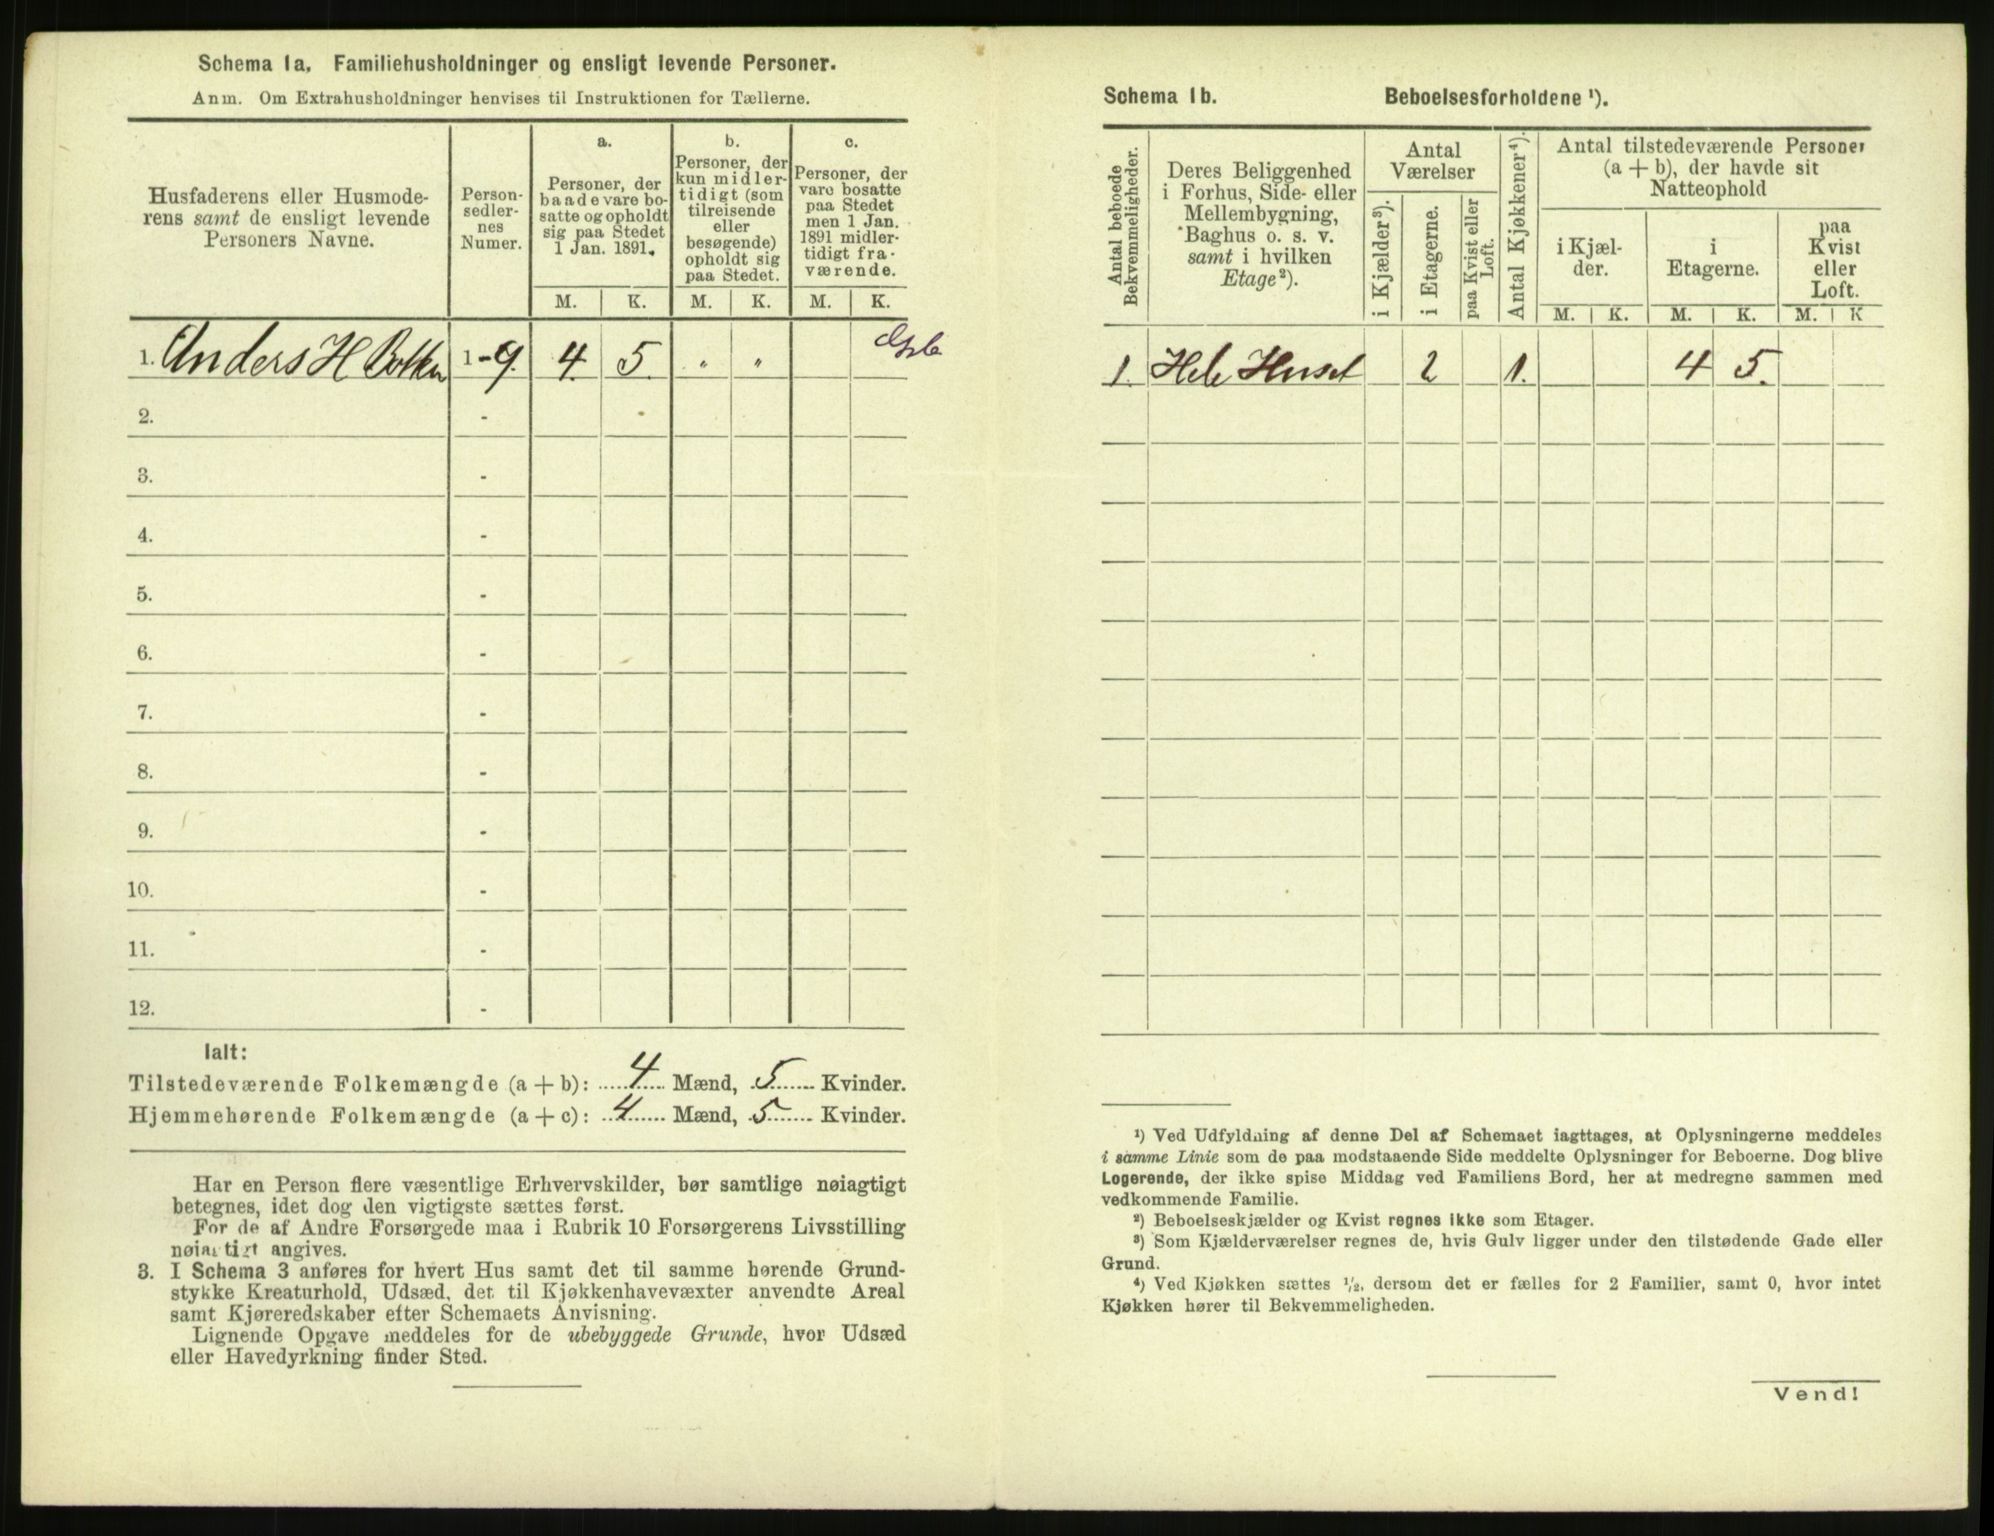 Schema 1a. Familiehusholdninger og ensligt levende Personer.
Anm. Om Extrahusholdninger henvises til Instruktionen for Tællerne.
Husfaderens eller Husmode-
rens samt de ensligt levende
Personers Navne.
Person-
sedler-
nes
Numer.
a.
Personer, der
baade vare bo-
satte og opholdt
sig paa Stedet
1 Jan. 1891.
M. K.
b.
Personer, der
kun midler-
tidigt (som
tilreisende
eller
besøgende)
opholdt sig
paa Stedet.
M. K.
c.
Personer, der
vare bosatte
paa Stedet
men 1 Jan.
1891 midler-
tidigt fra-
værende.
M. K.
1. Anders H 1-9. 4. 5. " "
2. -
3. -
4. -
5. -
6. -
7. -
8. -
9. -
10. -
11. -
12. -
Ialt:
Tilstedeværende Folkemængde (a + b): 4 Mænd, 5 Kvinder.
Hjemmehørende Folkemængde (a + c): 4 Mænd, 5 Kvinder.
Har en Person flere væsentlige Erhvervskilder, bør samtlige nøiagtigt
betegnes, idet dog den vigtigste sættes først.
For de af Andre Forsørgede maa i Rubrik 10 Forsørgerens Livsstilling
nøiagtigt angives.
3. I Schema 3 anføres for hvert Hus samt det til samme hørende Grund-
stykke Kreaturhold, Udsæd, det til Kjøkkenhavevæxter anvendte Areal
samt Kjøreredskaber efter Schemaets Anvisning.
Lignende Opgave meddeles for de ubebyggede Grunde, hvor Udsæd
eller Havedyrkning finder Sted.
Schema 1b. Beboelsesforholdene ¹).
Antal beboede
Bekvemmeligheder.
Deres Beliggenhed
i Forhus, Side- eller
Mellembygning,
Baghus o. s. v.
samt i hvilken
Etage ²).
Antal
Værelser
i Kjælder ³).
i Etagerne.
paa Kvist eller
Loft.
Antal Kjøkkener ⁴).
Antal tilstedeværende Personer
(a + b), der havde sit
Natteophold
i Kjæl-
der.
i
Etagerne.
paa
Kvist
eller
Loft.
M. K. M. K. M. K
1. Hele Huset 2 1. 4 5.
¹) Ved Udfyldning af denne Del af Schemaet iagttages, at Oplysningerne meddeles
i samme Linie som de paa modstaaende Side meddelte Oplysninger for Beboerne. Dog blive
Logerende, der ikke spise Middag ved Familiens Bord, her at medregne sammen med
vedkommende Familie.
²) Beboelseskjælder og Kvist regnes ikke som Etager.
³) Som Kjælderværelser regnes de, hvis Gulv ligger under den tilstødende Gade eller
Grund.
⁴) Ved Kjøkken sættes ½, dersom det er fælles for 2 Familier, samt 0, hvor intet
Kjøkken hører til Bekvemmeligheden.
Vend!